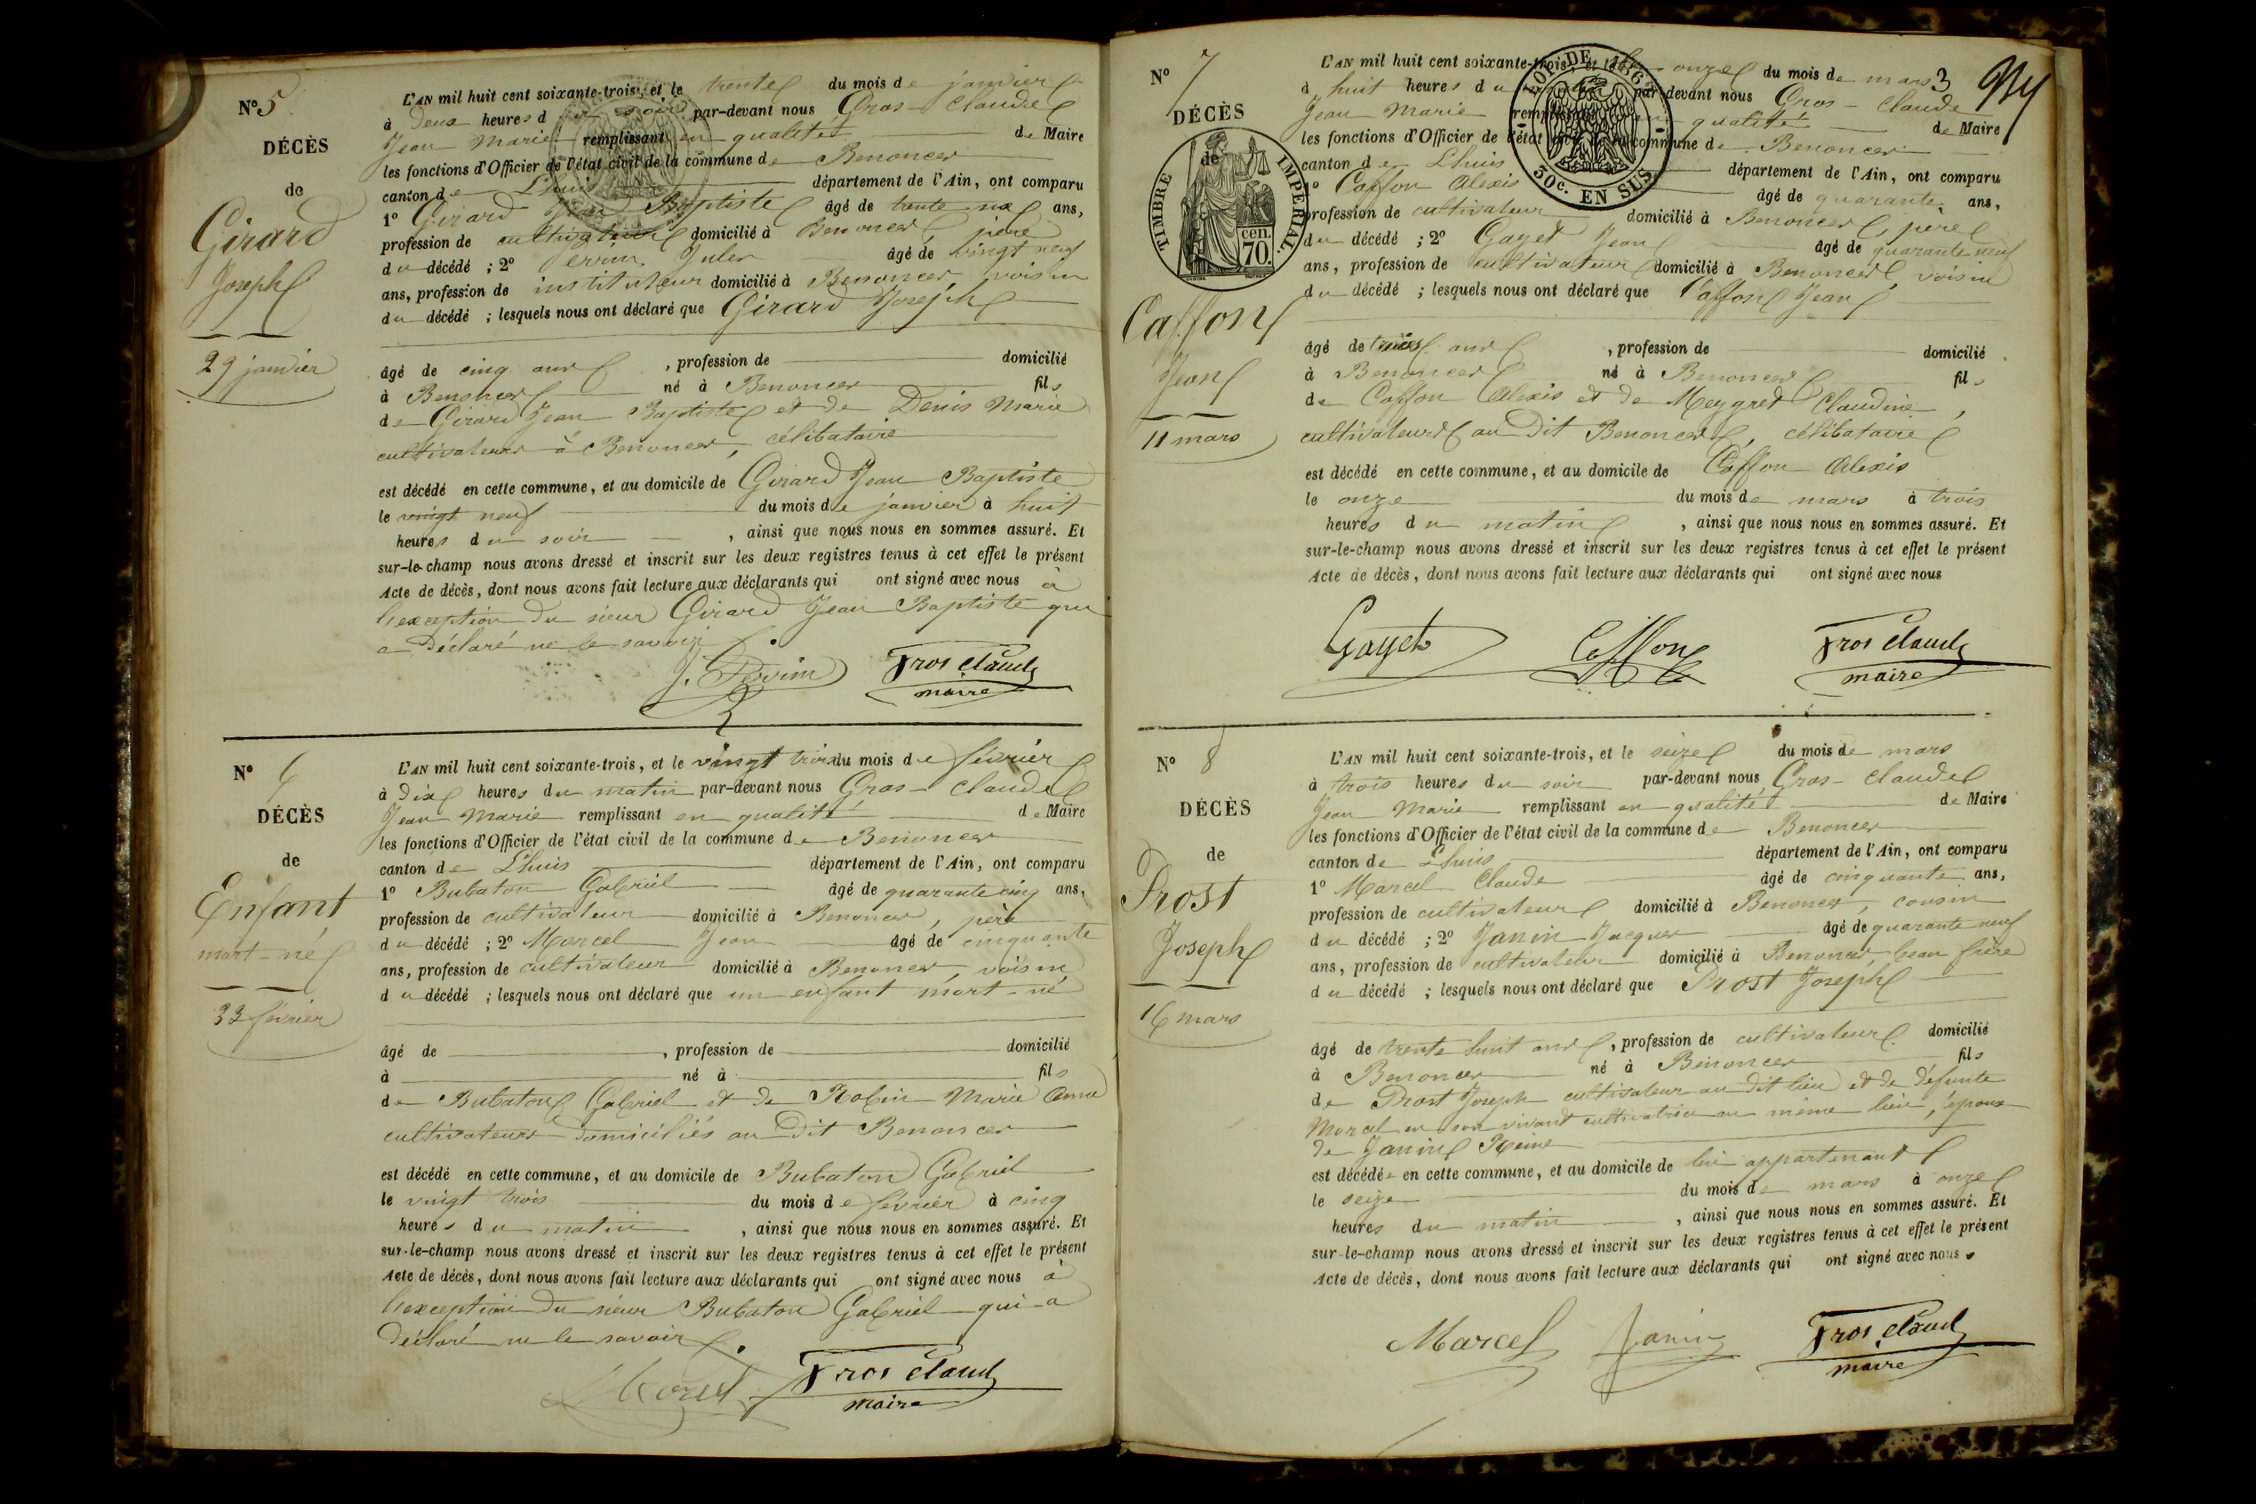 N° 5
DÉCÈS
de
Girard
Joseph
29 janvier
L'AN mil huit cent soixante-trois, et le trente du mois de janvier
à deux heures du soir par-devant nous Gros-Claude
Jean Marie remplissant en qualité de Maire
les fonctions d'Officier de l'état civil de la commune de Benonces
canton de Lhuis département de l'Ain, ont comparu
1° Girard Jean Baptiste âgé de trente six ans,
profession de cultivateur domicilié à Benonces, père
du décédé ; 2° Perrin Jules âgé de vingt neuf
ans, profession de instituteur domicilié à Benonces, voisin
du décédé ; lesquels nous ont déclaré que Girard Joseph
âgé de cinq ans, profession de domicilié
à Benonces né à Benonces fils
de Girard Jean Baptiste et de Denis Marie
cultivateurs à Benonces, célibataire
est décédé en cette commune, et au domicile de Girard Jean Baptiste
le vingt neuf du mois de janvier à huit
heures du soir, ainsi que nous nous en sommes assuré. Et
sur-le-champ nous avons dressé et inscrit sur les deux registres tenus à cet effet le présent
Acte de décès, dont nous avons fait lecture aux déclarants qui ont signé avec nous à
l'exception du sieur Girard Jean Baptiste qui
a déclaré ne le savoir
J. Perrin Gros Claude
maire
N° 6
DÉCÈS
de
Enfant
mort-né
23 février
L'AN mil huit cent soixante-trois, et le vingt trois du mois de février
à dix heures du matin par-devant nous Gros-Claude
Jean Marie remplissant en qualité de Maire
les fonctions d'Officier de l'état civil de la commune de Benonces
canton de Lhuis département de l'Ain, ont comparu
1° Bubaton Gabriel âgé de quarante cinq ans,
profession de cultivateur domicilié à Benonces, père
du décédé ; 2° Marcel Jean âgé de cinquante
ans, profession de cultivateur domicilié à Benonces, voisin
du décédé ; lesquels nous ont déclaré que un enfant mort-né
âgé de , profession de domicilié
à né à fils
de Bubaton Gabriel et de Robin Marie Anne
cultivateurs domiciliés au dit Benonces
est décédé en cette commune, et au domicile de Bubaton Gabriel
le vingt trois du mois de février à cinq
heures du matin, ainsi que nous nous en sommes assuré. Et
sur-le-champ nous avons dressé et inscrit sur les deux registres tenus à cet effet le présent
Acte de décès, dont nous avons fait lecture aux déclarants qui ont signé avec nous à
l'exception du sieur Bubaton Gabriel qui a
déclaré ne le savoir
Marcel Gros Claude
maire
3
N° 7
DÉCÈS
de
TIMBRE IMPERIAL.
70. cen.
Caffon
Jean
11 mars
LOI DE 1862
30c. EN SUS
L'AN mil huit cent soixante-trois, et le onze du mois de mars
à huit heures du par-devant nous Gros-Claude
Jean Marie remplissant en qualité de Maire
les fonctions d'Officier de l'état civil de la commune de Benonces
canton de Lhuis département de l'Ain, ont comparu
1° Caffon Alexis âgé de quarante ans,
profession de cultivateur domicilié à Benonces, père
du décédé ; 2° Gayet Jean âgé de quarante neuf
ans, profession de cultivateur domicilié à Benonces, voisin
du décédé ; lesquels nous ont déclaré que Caffon Jean
âgé de trois ans, profession de domicilié
à Benonces né à Benonces fils
de Caffon Alexis et de Meygret Claudine,
cultivateurs au dit Benonces, célibataire
est décédé en cette commune, et au domicile de Caffon Alexis
le onze du mois de mars à trois
heures du matin, ainsi que nous nous en sommes assuré. Et
sur-le-champ nous avons dressé et inscrit sur les deux registres tenus à cet effet le présent
Acte de décès, dont nous avons fait lecture aux déclarants qui ont signé avec nous
Gayet Caffon Gros Claude
maire
N° 8
DÉCÈS
de
Prost
Joseph
16 mars
L'AN mil huit cent soixante-trois, et le seize du mois de mars
à trois heures du soir par-devant nous Gros-Claude
Jean Marie remplissant en qualité de Maire
les fonctions d'Officier de l'état civil de la commune de Benonces
canton de Lhuis département de l'Ain, ont comparu
1° Marcel Claude âgé de cinquante ans,
profession de cultivateur domicilié à Benonces, cousin
du décédé ; 2° Janin Jacques âgé de quarante neuf
ans, profession de cultivateur domicilié à Benonces, beau frère
du décédé ; lesquels nous ont déclaré que Prost Joseph
âgé de trente huit ans, profession de cultivateur domicilié
à Benonces né à Benonces fils
de Prost Joseph cultivateur au dit lieu et de défunte
Marcel en son vivant cultivatrice au même lieu, époux
de Janin Reine
est décédé en cette commune, et au domicile de lui appartenant
le seize du mois de mars à onze
heures du matin, ainsi que nous nous en sommes assuré. Et
sur-le-champ nous avons dressé et inscrit sur les deux registres tenus à cet effet le présent
Acte de décès, dont nous avons fait lecture aux déclarants qui ont signé avec nous
Marcel Janin Gros Claude
maire